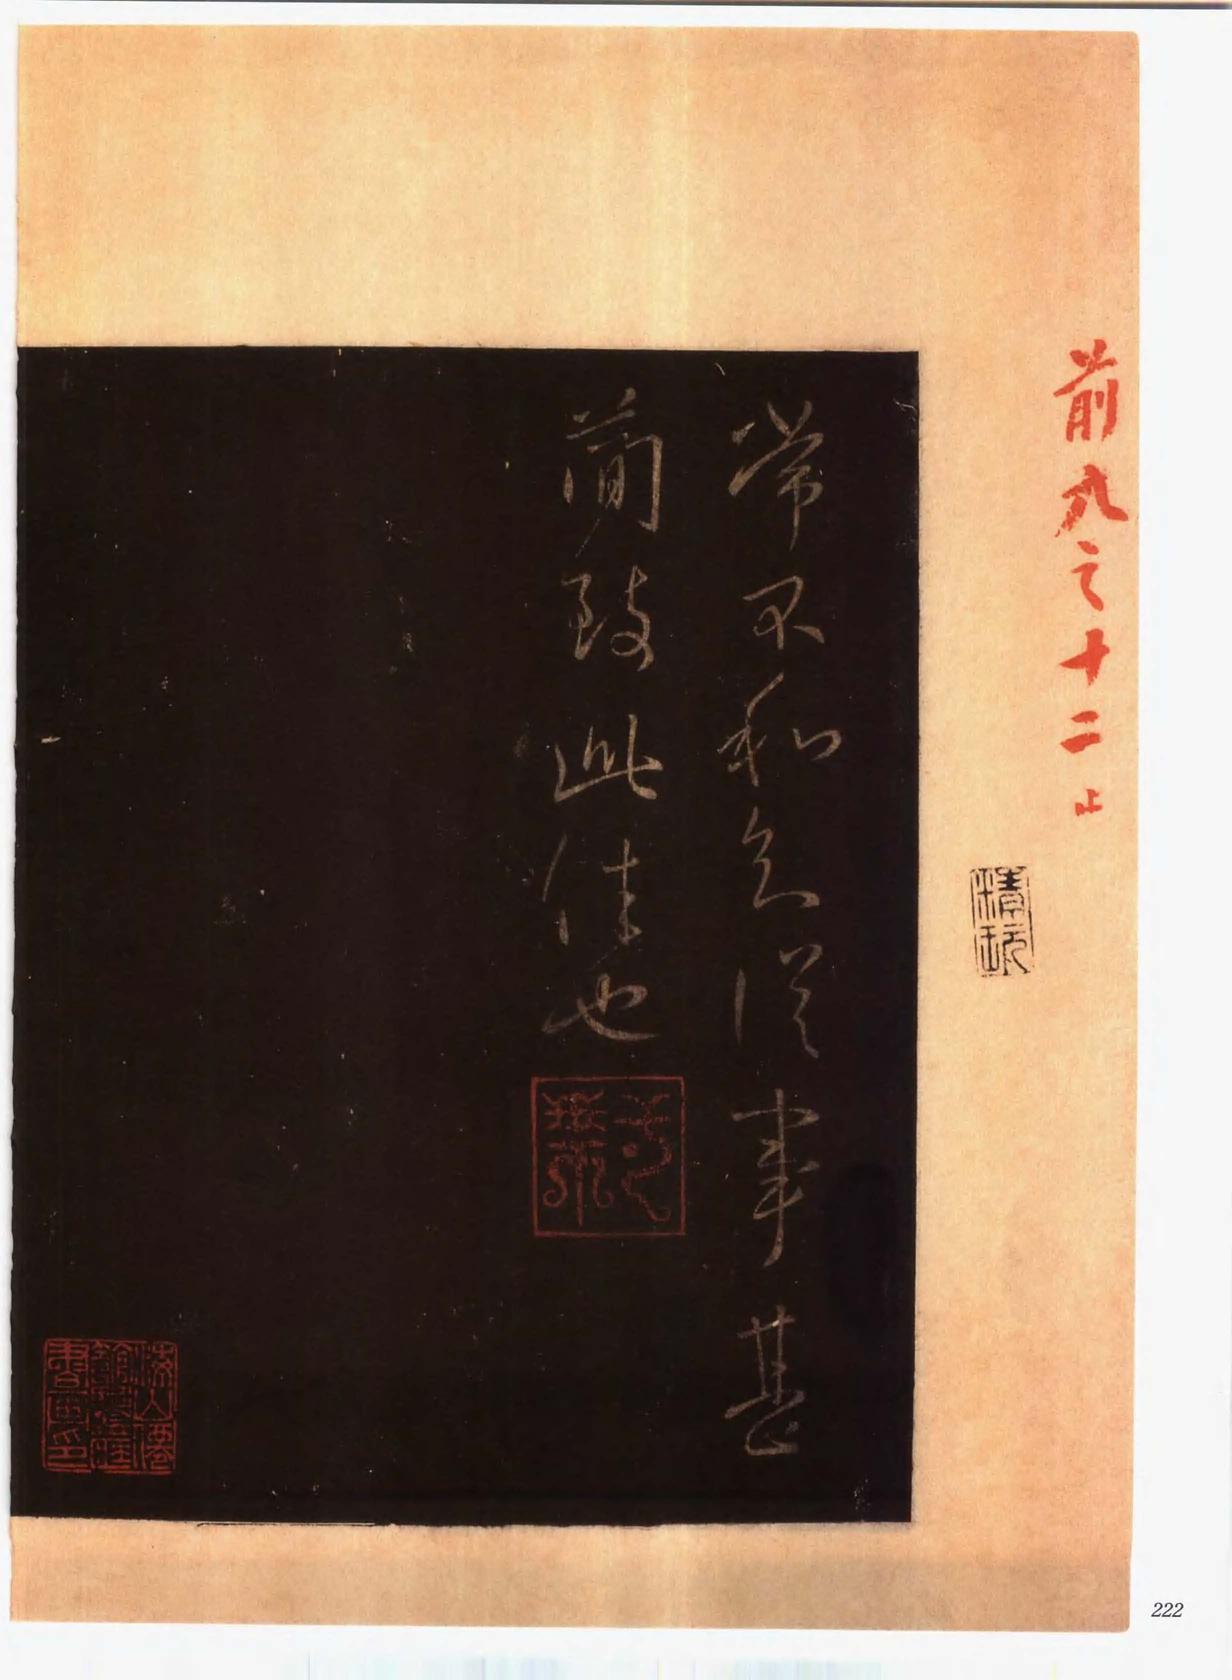 前九之十二止
精玩
常不和從事甚
簡致此佳也
222